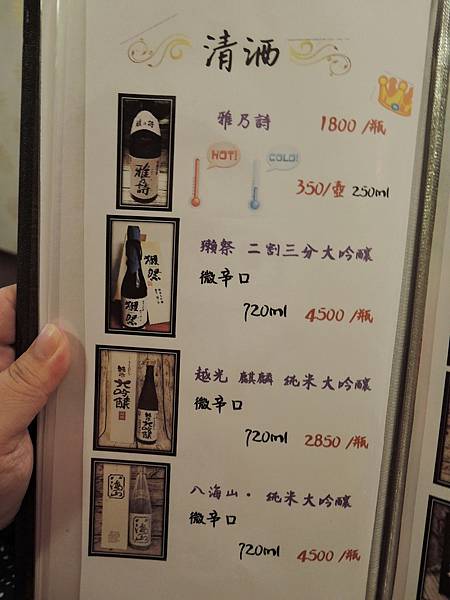 清酒
雅乃詩 1800/瓶
HOT! COLD!
350/壺 250ml
獺祭 二割三分大吟釀
微辛口
720ml 4500/瓶
越光 麒麟 純米大吟釀
微辛口
720ml 2850/瓶
八海山・純米大吟釀
微辛口
720ml 4500/瓶
雅乃詩
獺祭
大吟醸
八海山